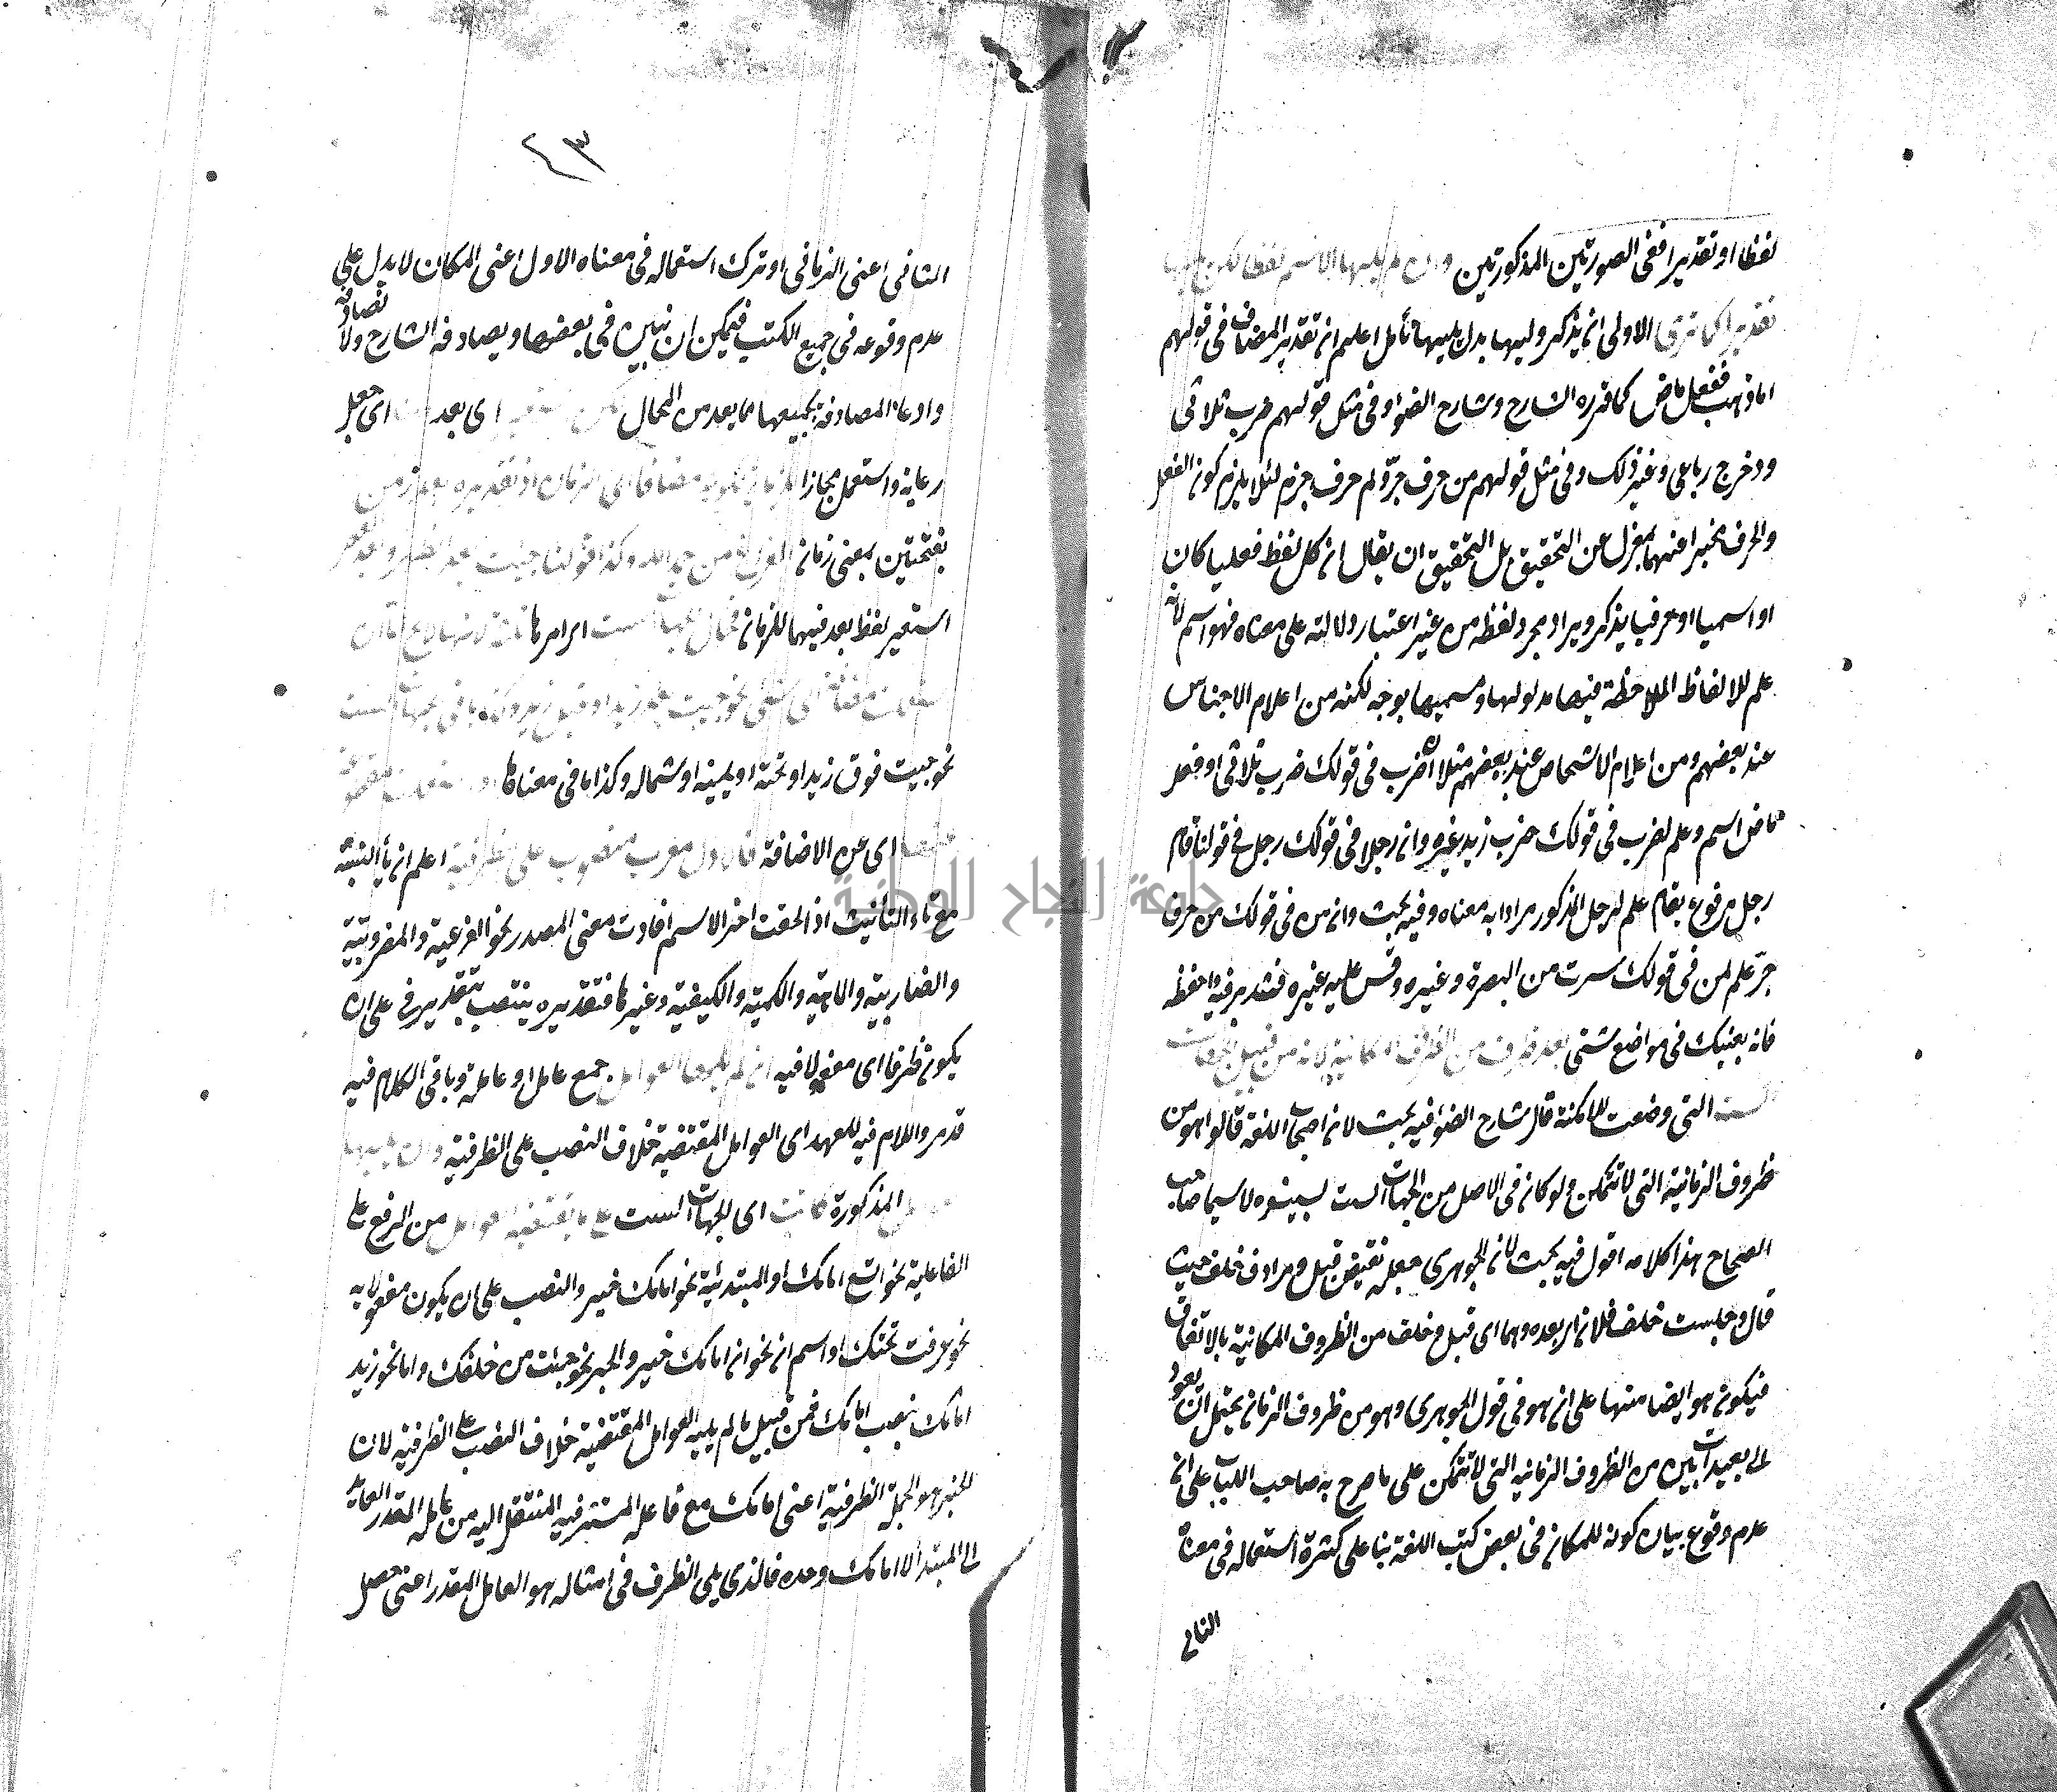 لفظا او تقديرا ففى الصورتين المذكورتين وان لم يليها الاسم لفظا لكن يليها
تقديرا كما ترى الاولى ان يذكر وليها بدل يليها تأمل اعلم ان تقدير المضاف فى قولهم
اما ذهب ففعل ماض كما قدره الشارح وشارح الضوء وفى مثل قولهم ضرب ثلاثى
ودخرج رباعى وغير ذلك وفى مثل قولهم من حرف جرّ ولم حرف جزم لئلا يلزم كون الفعل
والحرف مخبرا عنهما بمعزل عن التحقيق بل التحقيق ان يقال ان كل لفظ فعليا كان
او اسميا او حرفيا يذكر ويراد مجرد لفظه من غير اعتبار دلالته على معناه فهو اسم لانه
علم للالفاظ الملاحظة فيها مدلولها ومسميها بوجه لكنه من اعلام الاجناس
عند بعضهم ومن اعلام الاشخاص عند بعضهم مثلا ان ضرب فى قولك ضرب ثلاثى او فعل
ماض اسم وعلم لضرب فى قولك ضرب زيد غيره وان رجلا فى قولك رجل فى قولنا قام
رجل مرفوع بقام علم لرجل المذكور مرادا به معناه وفيه بحث وان من فى قولك من حرف
جرّ علم لمن فى قولك سرت من البصرة وغيره وقس عليه غيره فتدبر فيه واحفظه
فانه يعنيك فى مواضع شتى بعد ظرف من الظرف المكانية لانه من قبيل الجهات
الست التى وضعت للامكنة قال شارح الضوء فيه بحث لان اصحاب اللغة قالوا هو من
ظروف الزمانية التى لا تتمكن ولو كان فى الاصل من الجهات الست لبينوه لا سيما صاحب
الصحاح هذا كلامه اقول فيه بحث لان الجوهرى جعله نقيض قبل ومرادف خلف حيث
قال وجلست خلف فلان اى بعده وهما اى قبل وخلف من الظروف المكانية بالاتفاق
فيكون هو ايضا منها على ان هو فى قول الجوهرى وهو من ظروف الزمان يحتمل ان يعود
الى بعيدات بين من الظروف الزمانيه التى لا تتمكن على ما صرح به صاحب اللباب على ان
عدم وقوع بيان كونه للمكان فى بعض كتب اللغة بناء على كثرة استعماله فى معناه
الثانى
٤٣
الثانى اعنى الزمانى او ترك استعماله فى معناه الاول اعنى المكان لا يدل على
عدم وقوعه فى جميع الكتب فيمكن ان نبين فى بعضها ويصادفه الشارح ولا نصادفه
وادعاء المصادفة بجميعها مما يعد من المحال اى بعد اى جعل
رعاية واستعمل مجازا للزمان لكونه مضافا الى الزمان اذ تقديره بعد زمن
بفتحتين بمعنى زمان الفراغ من حمد الله وكذا قولنا جئت بعد الظهر وبعد العصر
استعير لفظ بعد فيهما للزمان
نحو جئت فوق زيد او تحته او يمينه او شماله وكذا ما فى معناها
عنها اى عن الاضافة فالاول معرب منصوب على الظرفية اعلم ان يأ النسبة
مع تاء التأنيث اذا لحقت اخر الاسم افادت معنى المصدر نحو الفرعية والمضروبية
والضاربية والماهية والكمية والكيفية وغيرها فتقديره ينتصب بتقدير فى على ان
يكون ظرفا اى مفعولا فيه ان لم يليها العوامل جمع عامل او عاملة وباقى الكلام فيه
قد مر واللام فيه للعهد اى العوامل المقتضية خلاف النصب على الظرفية وان يليها
العوامل المذكورة كانت اى الجهات الست على ما يقتضيه العوامل من الرفع على
الفاعلية نحو اتسع امامك او المبتدئية نحو امامك خير والنصب على ان يكون مفعولا به
نحو عرفت تحتك او اسم ان نحو ان امامك خير والجر نحو جئت من خلفك واما نحو زيد
امامك بنصب امامك فمن قبيل ما لم يليه العوامل المقتضية خلاف النصب على الظرفية لان
الخبر هو الجملة الظرفية اعنى امامك مع فاعله المستتر فيه المنتقل اليه من عامله المقدر العائد
الى المبتدأ لا امامك وحده فالذى يلى الظرف فى امثاله هو العامل المقدر اعنى حصل
جامعة النجاح الوطنية